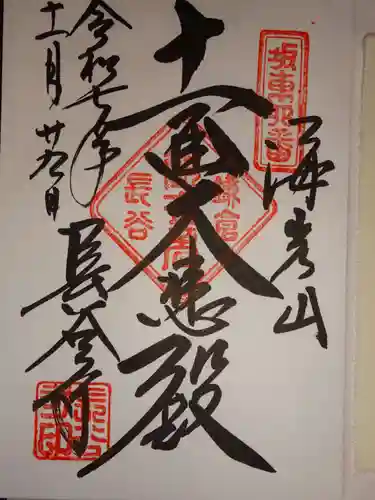 坂東四番
海光山
十一面大悲殿
鎌倉
長谷
長谷寺
令和七年
十一月廿五日